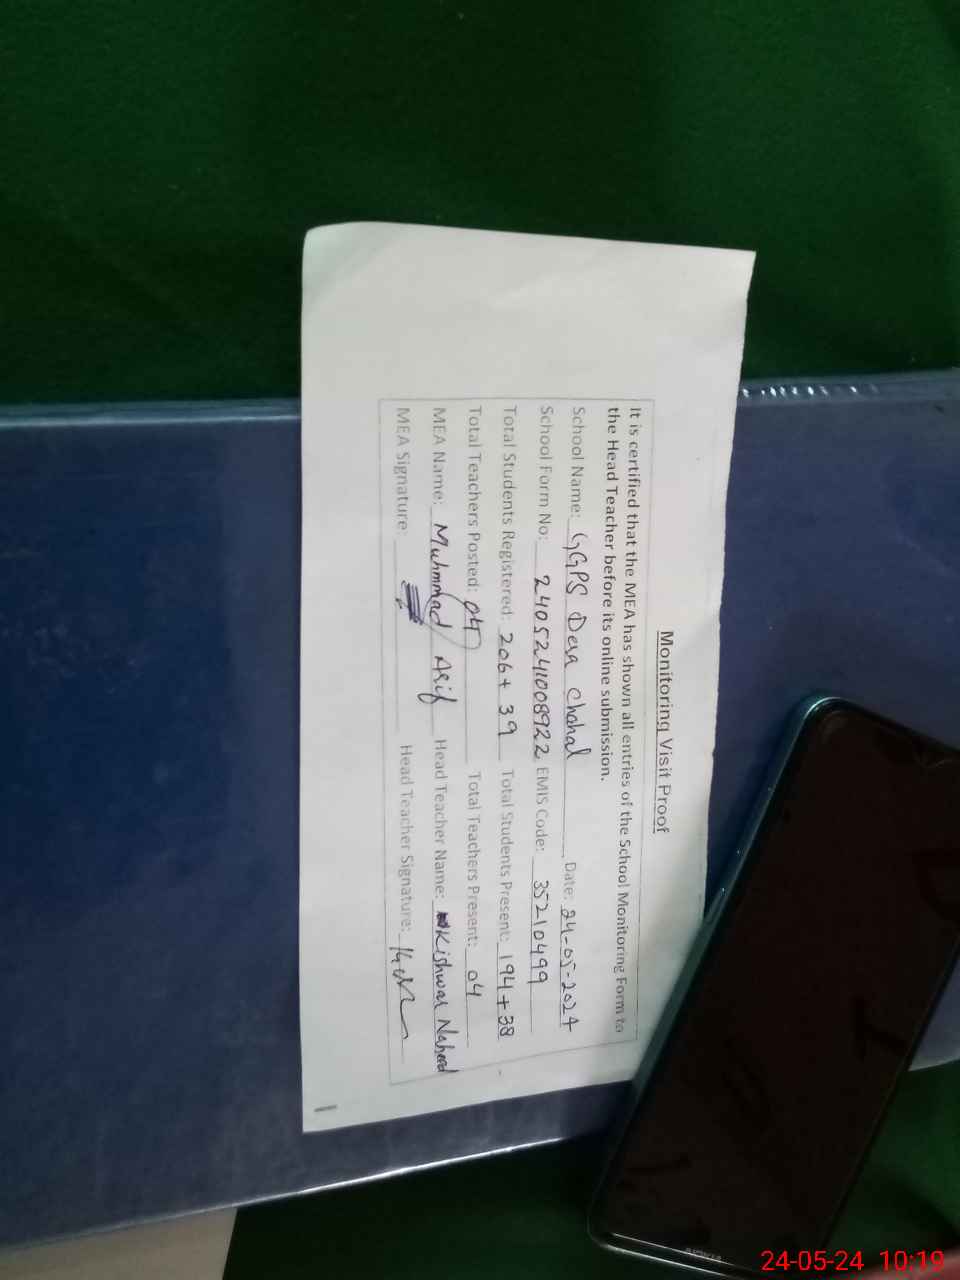 Monitoring Visit Proof
It is certified that the MEA has shown all entries of the School Monitoring Form to
the Head Teacher before its online submission.
School Name: GGPS Dera Chahal Date: 24-05-2024
School Form No: 2405241008922 EMIS Code: 35210499
Total Students Registered: 206+39 Total Students Present: 194+38
Total Teachers Posted: 04 Total Teachers Present: 04
MEA Name: Muhmmad Asif Head Teacher Name: Kishwar Naheed
MEA Signature: Head Teacher Signature:
24-05-24 10:19